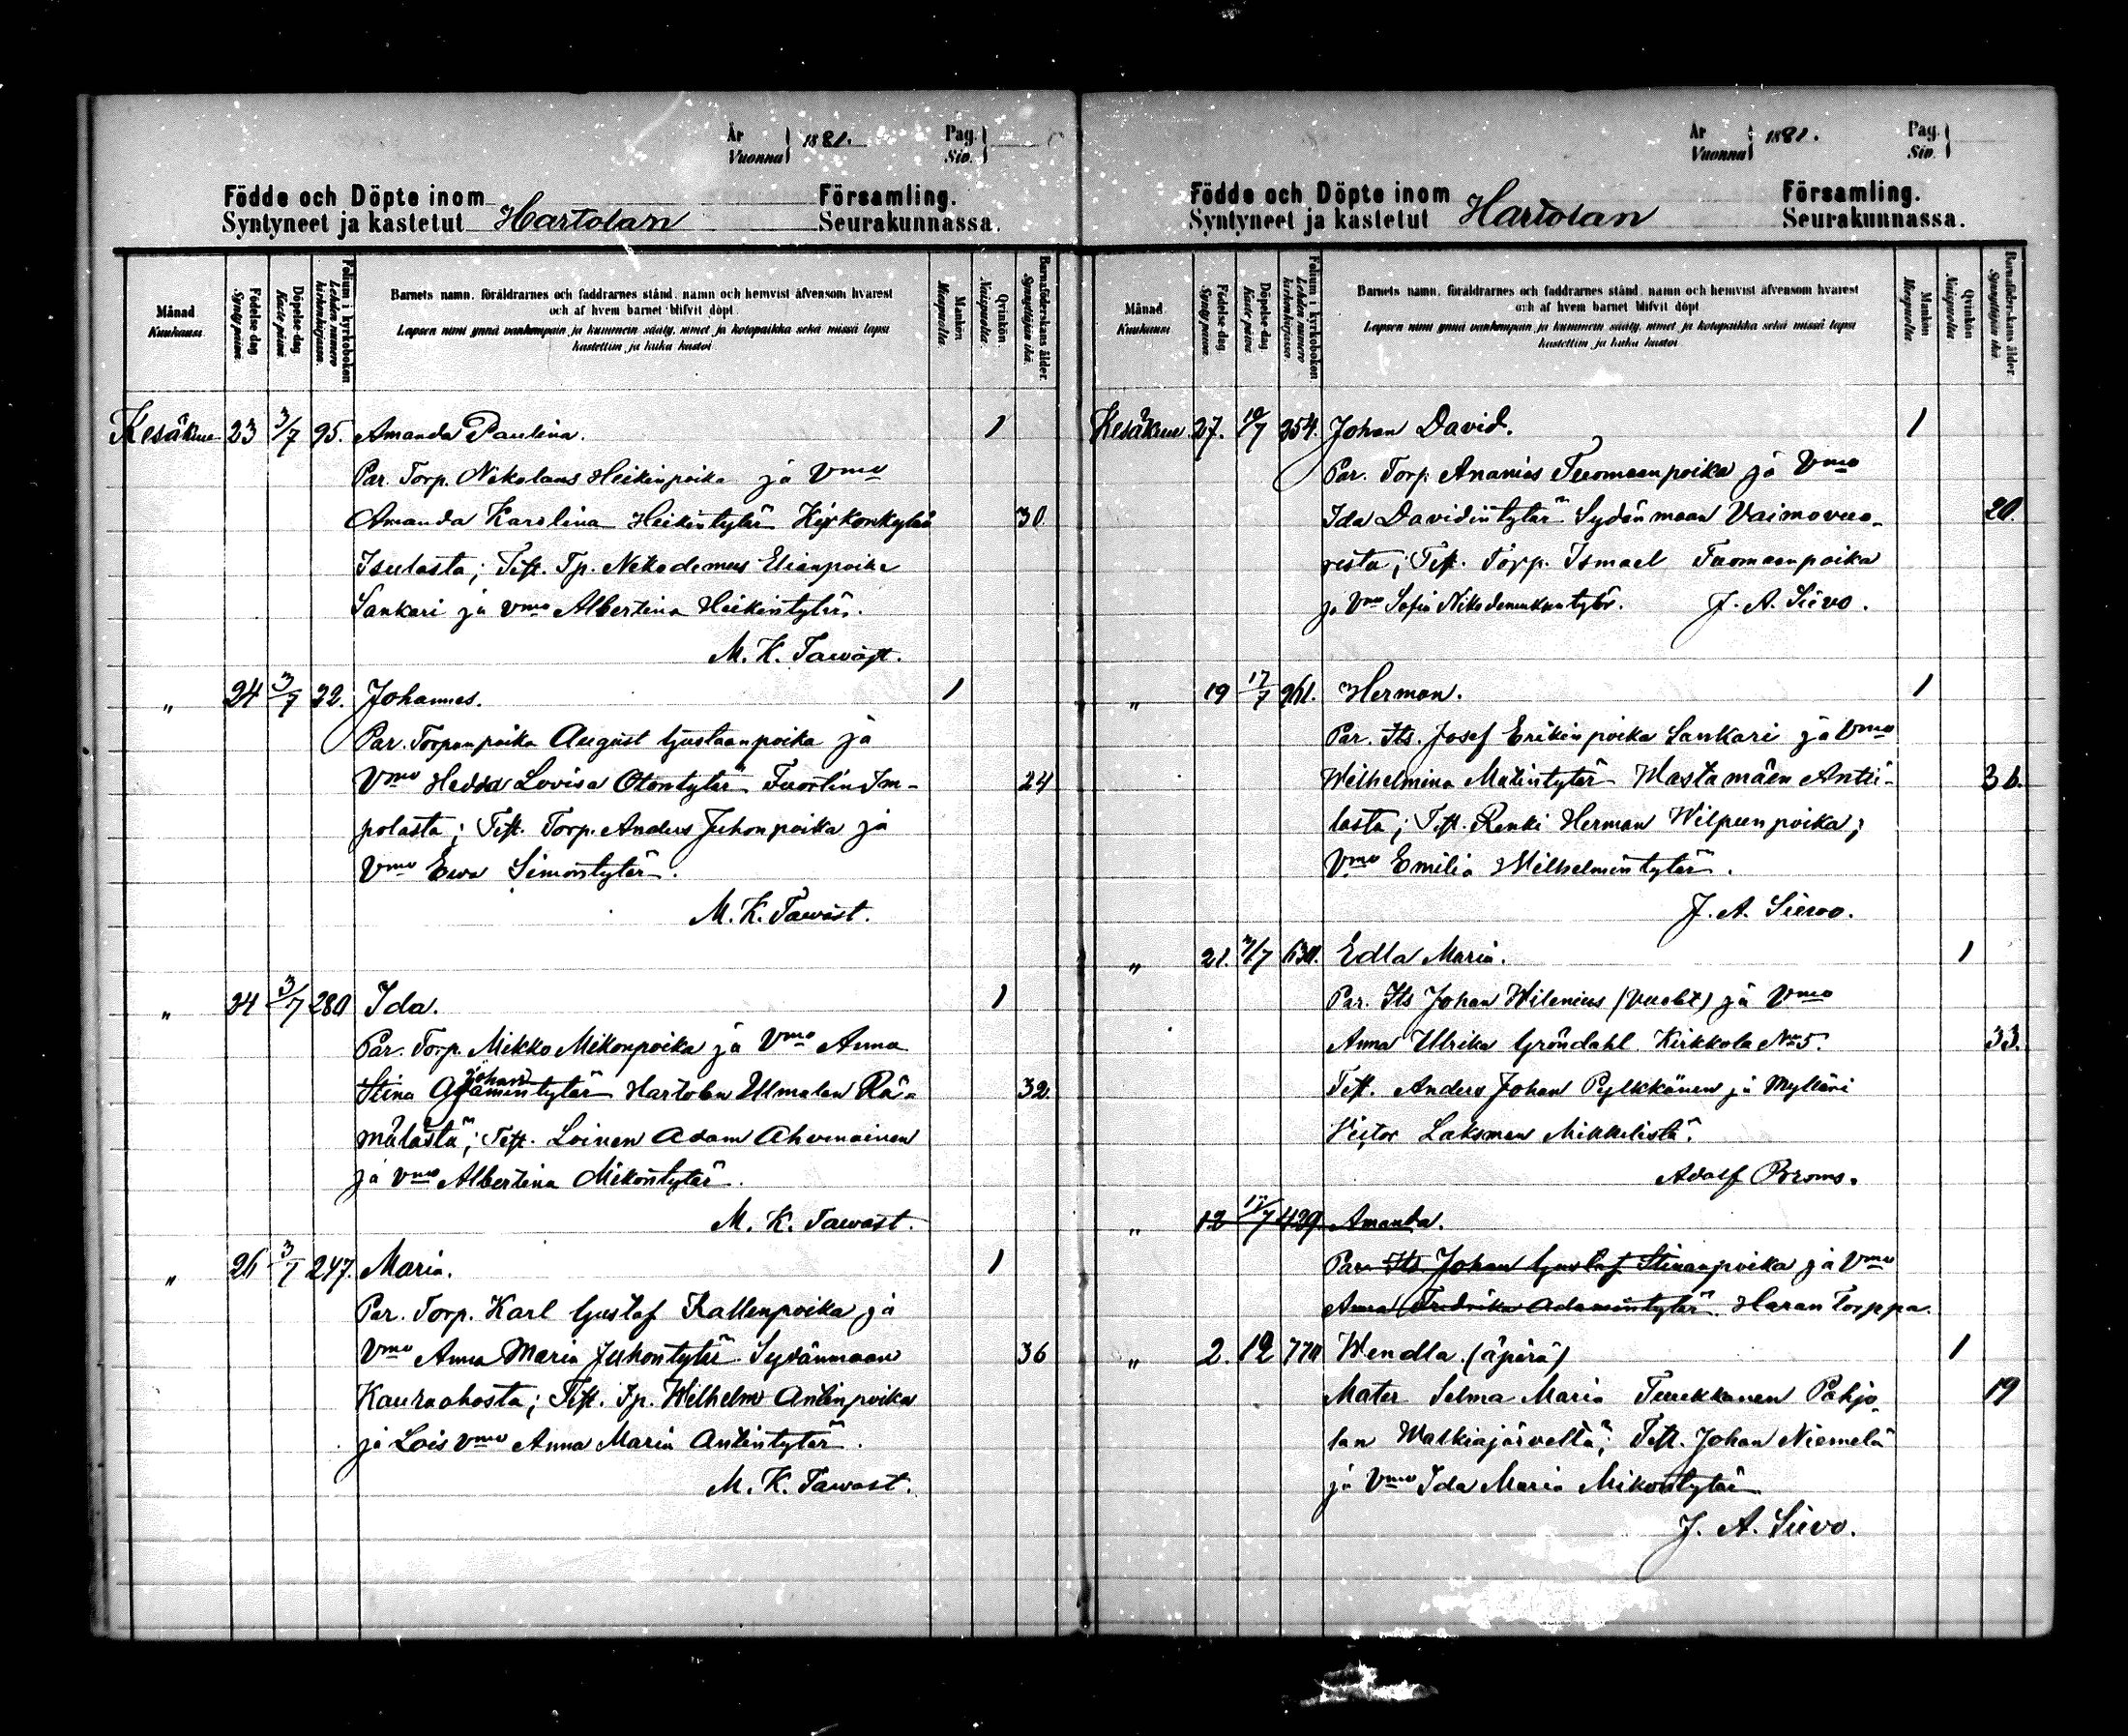 År
Vuonna 1881.
Pag.
Siv.
Födde och Döpte inom Församling.
Syntyneet ja kastetut Hartolan Seurakunnassa.
Månad
Kuukausi
Födelse-dag
Syntypäivä
Döpelse-dag
Kastepäivä
Folium i kyrkobokon
Lehden numero kirkonkirjassa.
Barnets namn, föräldrarnes och faddrarnes stånd, namn och hemvist äfvensom hvarest
och af hvem barnet blifvit döpt.
Lapsen nimi ynnä vanhempain ja kummein sääty, nimet ja kotopaikka sekä missä lapsi
kastettiin ja kuka kastoi
Mankön
Miespuolta
Qvinkön
Naispuolta
Barnaföderskans ålder.
Synnyttäjän ikä.
Kesäkuu 23 3/7 95. Amanda Paulina. 1
Par. Torp. Nikolaus Heikinpoika ja Vmo
Amanda Karolina Heikintytär Kirkonkylän 30
Isulasta; Test. Tp. Nikodemus Elianpoika
Sankari ja vmo Albertina Heikintytär.
M. K. Tawast.
„ 24 3/7 22. Johannes. 1
Par. Torpanpoika August Gustaanpoika ja
Vmo Hedda Lovisa Otontytär Tuortin Im- 24
polasta; Test. Torp. Anders Juhonpoika ja
Vmo Ewa Simontytär.
M. K. Tawast.
„ 24 3/7 280 Ida. 1
Par. Torp. Mikko Mikonpoika ja Vmo Anna
johan
Stina Adamintytär Hartolan Ulmalan Rä- 32.
mälästä; Test. Loinen Adam Ahvenainen
ja vmo Albertina Mikontytär.
M. K. Tawast.
„ 26 3/7 247. Maria. 1
Par. Torp. Karl Gustaf Kallenpoika ja
Vmo Anna Maria Juhontytär Sydänmaan 36
Kauraahosta; Test. Tp. Wilhelm Antinpoika
ja Lois vmo Anna Maria Antintytär.
M. K. Tawast.
År
Vuonna 1881.
Pag.
Siv.
Födde och Döpte inom Församling.
Syntyneet ja kastetut Hartolan Seurakunnassa.
Månad
Kuukausi
Födelse-dag
Syntypäivä
Döpelse-dag
Kastepäivä
Folium i kyrkobokon.
Lehden numero kirkonkirjassa.
Barnets namn, föräldrarnes och faddrarnes stånd, namn och hemvist äfvensom hvarest
och af hvem barnet blifvit döpt
Lapsen nimi ynnä vanhempain ja kummein sääty, nimet ja kotopaikka sekä missä lapsi
kastettiin ja kuka kastoi
Mankön
Miespuolta
Qvinkön
Naispuolta
Barnaföderskans ålder.
Synnyttäjän ikä
Kesäkuu 27. 10/7 354. Johan David. 1
Par. Torp. Ananias Tuomaanpoika ja Vmo
Ida Davidintytär Sydänmaan Vaimovuo- 20.
resta; Test. Torp. Ismael Tuomaanpoika
ja Vmo Sofia Nikodemuksentytär. J. A. Siévo.
„ 19 17/7 961. Herman. 1
Par. Its. Josef Erikinpoika Sankari ja Vmo
Wilhelmina Matintytär Mastamäen Antti- 36.
lasta; Test. Renki Herman Wilpunpoika;
Vmo Emilia Wilhelmintytär.
J. A. Siévo.
„ 21. 3/7 630. Edla Maria. 1
Par. Its Johan Wilenius (Vuokt) ja Vmo
Anna Ulrika Gröndahl Kirkkola No 5. 33.
Test. Anders Johan Pylkkänen ja Mylläri
Victor Laksman Mikkelistä.
Adolf Broms.
„ 12 17/7 429. Amanda.
Par. Its. Johan Gustaf Stinanpoika ja Vmo
Anna Fredrika Adamintytär Haran Torppa.
„ 2. 12 770 Wendla (äpärä) 1
Mater Selma Maria Turukkanen Pohjo- 19
lan Walkiajärveltä; Test. Johan Niemelä
ja Vmo Ida Maria Mikontytär
J. A. Siévo.